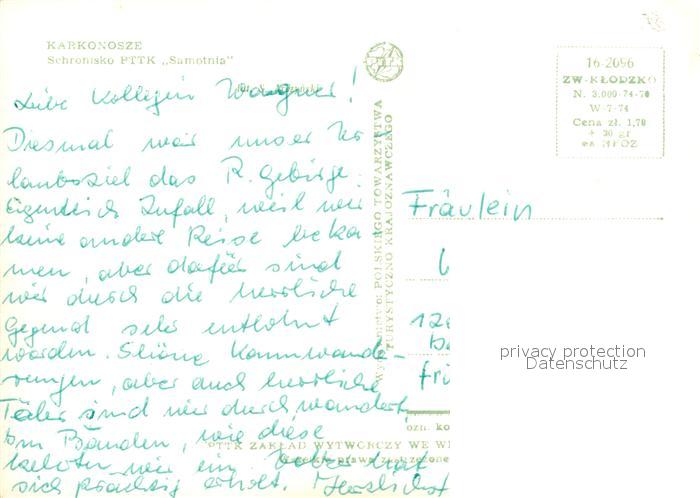 KARKONOSZE
Schronisko PTTK „Samotnia"
Liebe Kollegin Wagner!
Diesmal war unser Ur
laubsziel das R. Gebirge.
Eigentlich Zufall, weil wir
keine andere Reise beka
men, aber dafür sind
wir durch die herrliche
Gegend sehr entlohnt
worden. Schöne Kammwande-
rungen, aber auch herrliche
Täler sind wir durchwandert.
Im Bauden, wie diese
wir ein
sich prächtig erholt. Herzlichst
Wydawnictwo: POLSKIEGO TOWARZYSTWA
TURYSTYCZNO KRAJOZNAWCZEGO
16-2096
ZW-KŁODZKO
N. 3.000-74-70
W-7-74
Cena zł. 1,70
+ 30 gr
na NFOZ
Fräulein
privacy protection
Datenschutz
ozn. ko
PTTK ZAKŁAD WYTWÓRCZY WE W
prawa zastrzeżone